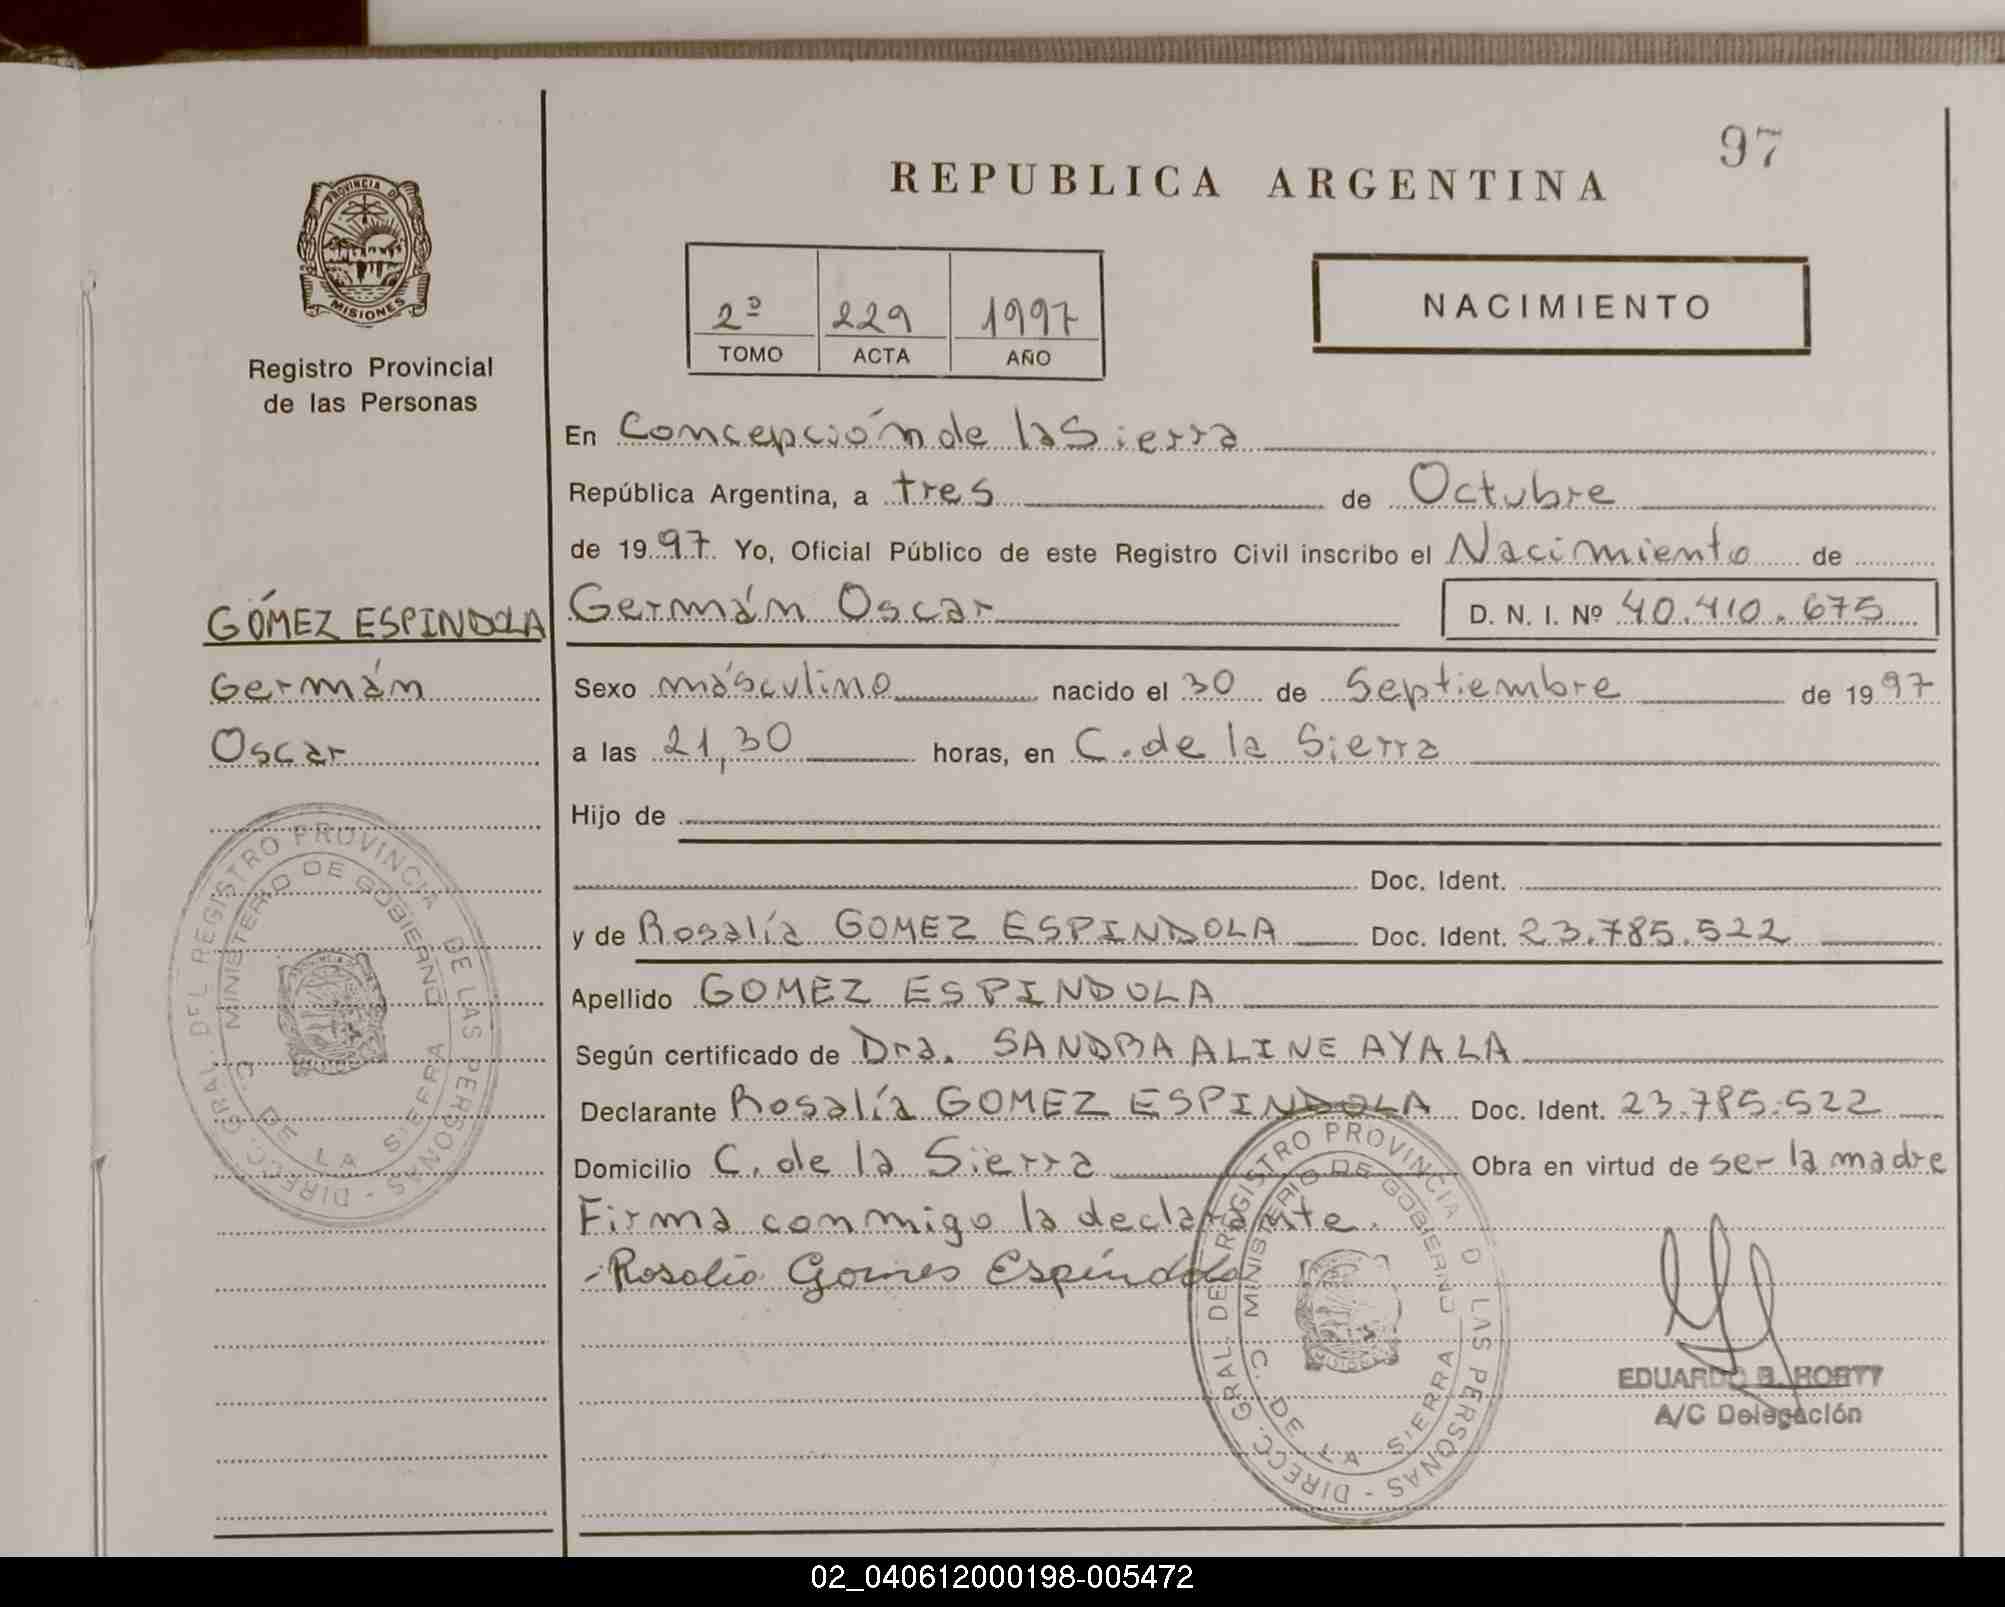 97
REPUBLICA ARGENTINA
PROVINCIA DE
MISIONES
Registro Provincial
de las Personas
2º 229 1997
TOMO ACTA AÑO
NACIMIENTO
En Concepción de la Sierra
República Argentina, a tres de Octubre
de 1997. Yo, Oficial Público de este Registro Civil inscribo el Nacimiento de
GÓMEZ ESPINDOLA
Germán Oscar D. N. I. Nº 40.410.675
Germán
Oscar
Sexo másculino nacido el 30 de Septiembre de 1997
a las 21,30 horas, en C. de la Sierra
Hijo de
Doc. Ident.
y de Rosalía GOMEZ ESPINDOLA Doc. Ident. 23.785.522
Apellido GOMEZ ESPINDOLA
Según certificado de Dra. SANDRA ALINE AYALA
Declarante Rosalía GOMEZ ESPINDOLA Doc. Ident. 23.785.522
Domicilio C. de la Sierra Obra en virtud de ser la madre
Firma conmigo la declarante.
Rosalia Gomes Espíndola
DIRECC. GRAL. DEL REGISTRO PROVINCIA DE LAS PERSONAS -
MINISTERIO DE GOBIERNO
C. DE LA SIERRA
DIRECC. GRAL. DEL REGISTRO PROVINCIA D LAS PERSONAS -
MINISTERIO DE GOBIERNO
C. DE LA SIERRA
EDUARDO
A/C Delegación
02_040612000198-005472